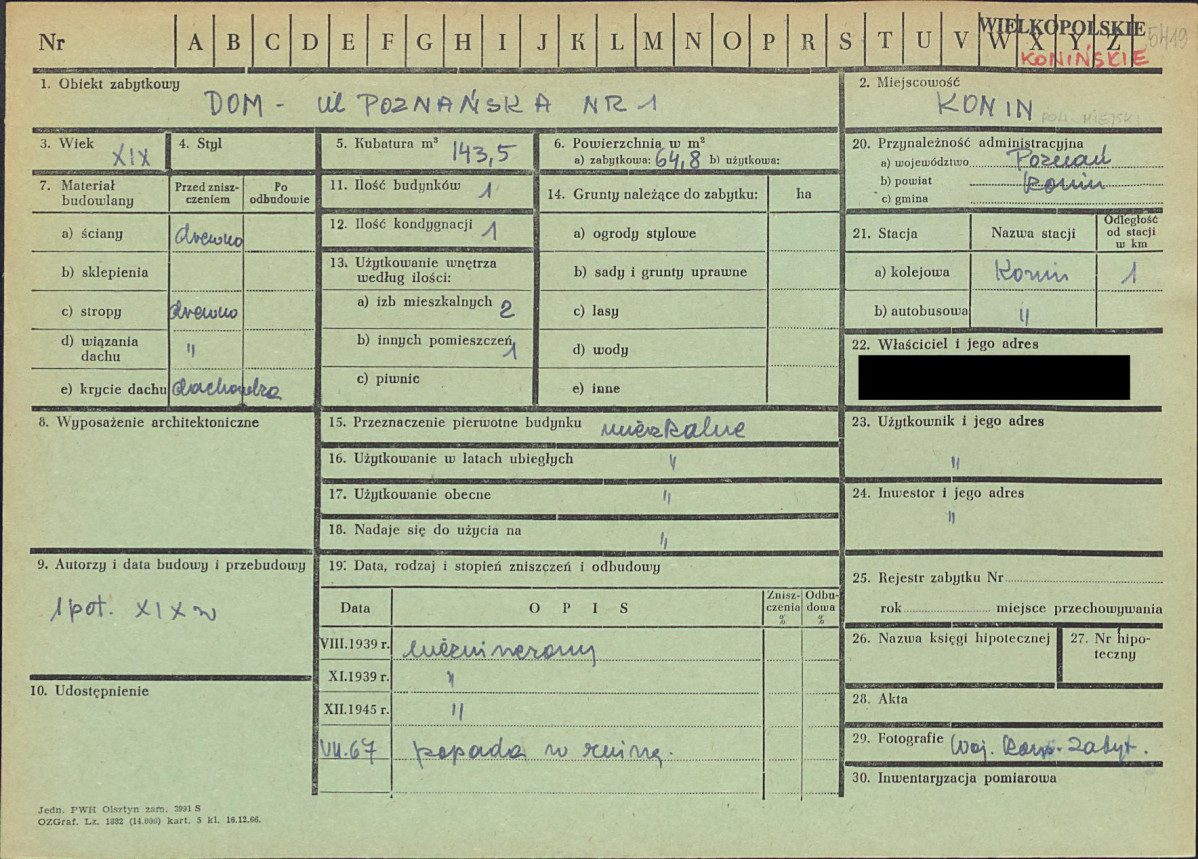 Nr A B C D E F G H I J K L M N O P R S T U V W X Y Z
WIELKOPOLSKIE
KONIŃSKIE
1. Obiekt zabytkowy
DOM - ul POZNAŃSKA NR 1
2. Miejscowość
KONIN
3. Wiek XIX
4. Styl
5. Kubatura m³ 143,5
6. Powierzchnia w m²
a) zabytkowa: 64,8 b) użytkowa:
7. Materiał budowlany
Przed zniszczeniem
Po odbudowie
a) ściany drewno
b) sklepienia
c) stropy drewno
d) wiązania dachu "
e) krycie dachu dachówka
8. Wyposażenie architektoniczne
9. Autorzy i data budowy i przebudowy
1 poł. XIX w
10. Udostępnienie
11. Ilość budynków 1
12. Ilość kondygnacji 1
13. Użytkowanie wnętrza
według ilości:
a) izb mieszkalnych 2
b) innych pomieszczeń 1
c) piwnic
14. Grunty należące do zabytku: ha
a) ogrody stylowe
b) sady i grunty uprawne
c) lasy
d) wody
e) inne
15. Przeznaczenie pierwotne budynku mieszkalne
16. Użytkowanie w latach ubiegłych "
17. Użytkowanie obecne "
18. Nadaje się do użycia na "
19. Data, rodzaj i stopień zniszczeń i odbudowy
Data OPIS Zniszczenia % Odbudowa %
VIII.1939 r.
XI.1939 r. "
XII.1945 r. "
VII.67 popada w ruinę.
20. Przynależność administracyjna
a) województwo Poznań
b) powiat Konin
c) gmina
21. Stacja Nazwa stacji Odległość od stacji w km
a) kolejowa Konin 1
b) autobusowa "
22. Właściciel i jego adres
23. Użytkownik i jego adres
"
24. Inwestor i jego adres
"
25. Rejestr zabytku Nr
rok miejsce przechowywania
26. Nazwa księgi hipotecznej
27. Nr hipoteczny
28. Akta
29. Fotografie Woj. Kons. Zabyt.
30. Inwentaryzacja pomiarowa
Jedn. PWH Olsztyn zam. 3891 S
OZGraf. Lz. 1882 (14.000) kart. 3 kl. 16.12.66.